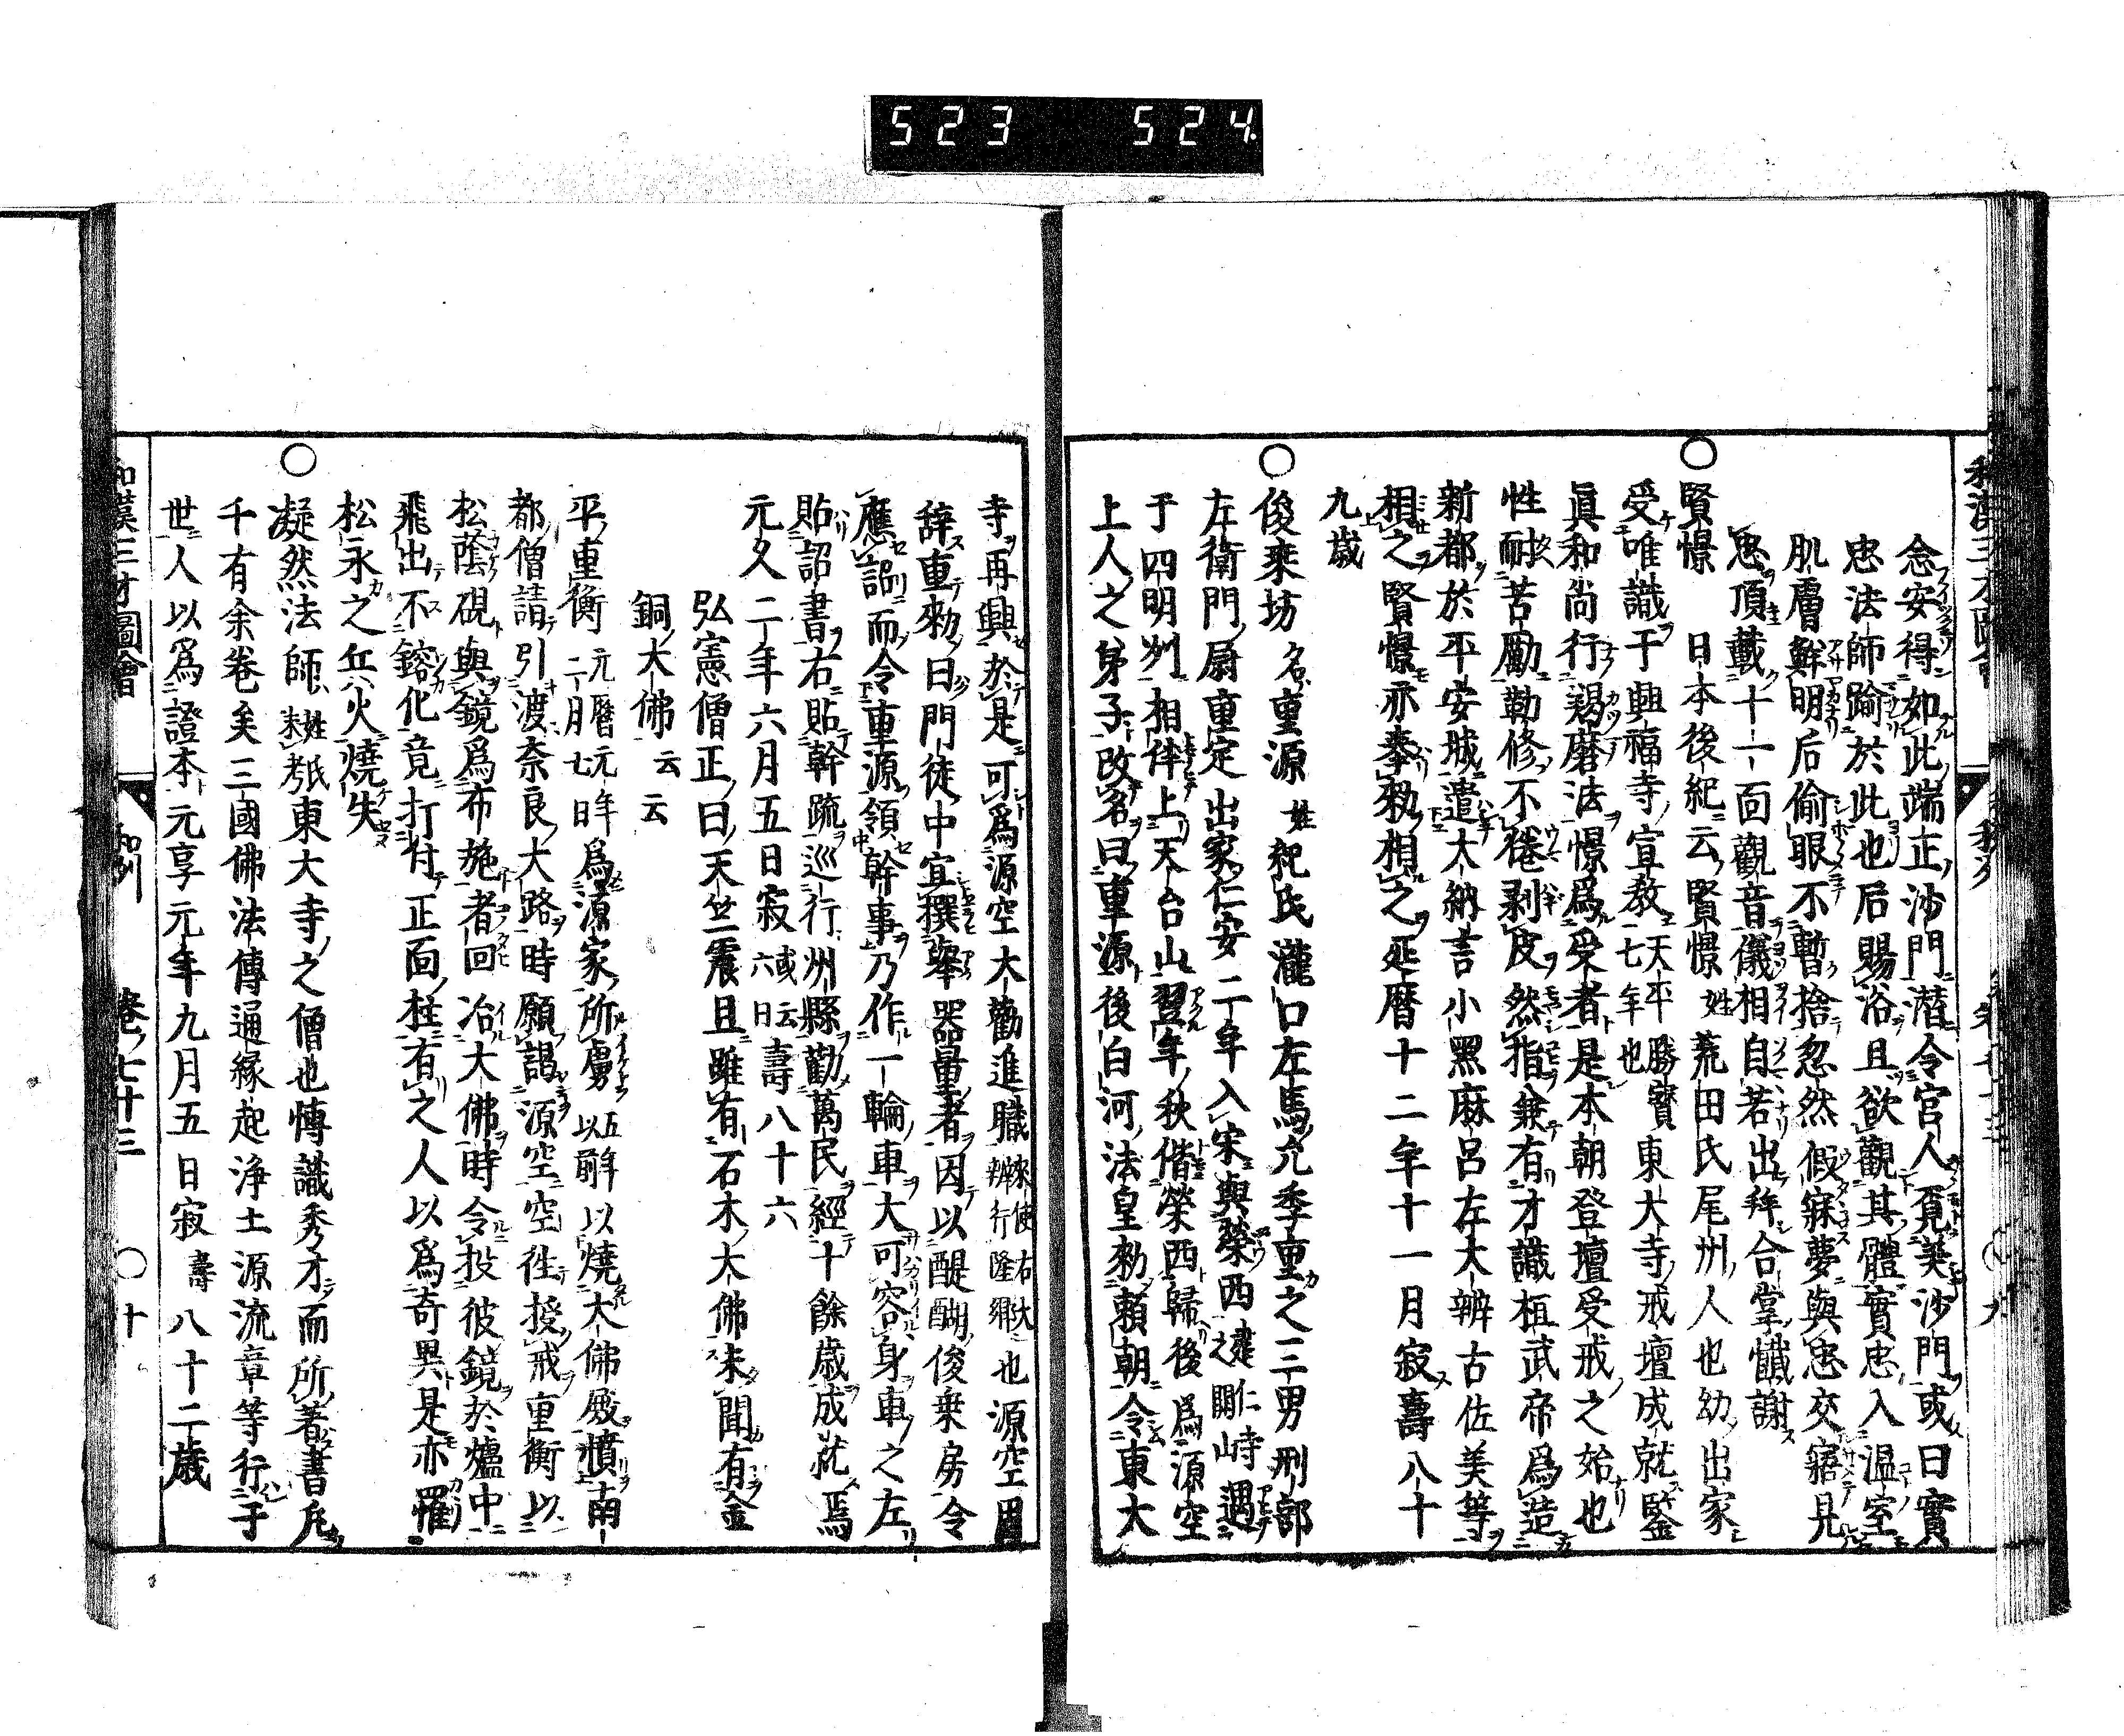 523 524
念安得如此端正沙門潛令官人覓美沙門或曰實
忠法師踰於此也后賜浴且欲觀其體實忠入温室
肌膚鮮明后偷眼不暫捨忽然假寐夢與忠交寤見
忠頂戴十一面觀音儀相自若出拜合掌懺謝
○賢憬 日本後紀云賢憬姓荒田氏尾州人也幼出家
受唯識于興福寺宣教天平勝寶七年也東大寺戒壇成就鑒
眞和尚行羯磨法憬爲受者是本朝登壇受戒之始也
性耐苦勵勒修不倦剥皮然指兼有才識桓武帝爲造
新都於平安城遣大納言小黒麻呂左大辨古佐美等
相之賢憬亦奉勅相之延暦十二年十一月寂壽八十
九歳
○俊乘坊 名重源 姓紀氏瀧口左馬允季重之三男刑部
左衛門尉重定出家仁安二年入宋與榮西建仁寺之開山遇
于四明州相伴上天台山翌年秋偕榮西歸後爲源空
上人之弟子改名曰重源後白河法皇勅賴朝令東大
寺再興於是可爲源空大勸進職勅使右大辨行隆卿也源空固
辞重勅曰門徒中宜撰擧器量者因以醍醐俊乗房令
應詔而令重源領幹事乃作一輪車大可容身車之左
貼詔書右貼幹疏巡行州縣勸萬民經十餘歳成就焉
元久二年六月五日寂或云六日壽八十六
弘憲僧正曰天竺震旦雖有石木大佛未聞有金
銅大佛云云
平重衡元暦元年二月七日爲源家所虜以五年前以燒大佛殿憤南
都僧請引渡奈良大路時願謁源空空往授戒重衡以
松蔭硯與鏡爲布施者回冶大佛時令投彼鏡於爐中
飛出不鎔化竟打付正面柱有之人以爲奇異是亦罹
松永之兵火燒失
○凝然法師姓氏未考東大寺之僧也博識秀才而所著書凡
千有余巻矣三國佛法傳通縁起浄土源流章等行于
世人以爲證本元享元年九月五日寂壽八十二歳
和漢三才圖會 和州 巻七十三 ○十